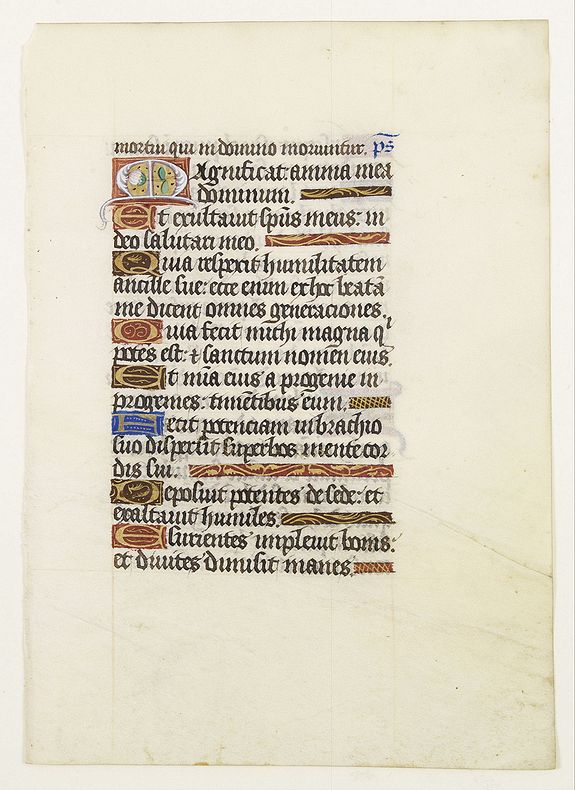 mortui qui in domino moriuntur. ps̄
Magnificat: anima mea
dominum.
Et exultauit sp̄us meus: in
deo salutari meo.
Quia respexit humilitatem
ancille sue: ecce enim ex hoc beatā
me dicent omnes generaciones.
Quia fecit michi magna qⁱ
potēs est: ⁊ sanctum nomen eius.
Et mīa eius a progenie in
progenies: timētibus eum.
Fecit potenciam in brachio
suo dispersit superbos mente cor
dis sui.
Deposuit potentes de sede: et
exaltauit humiles.
Esurientes impleuit bonis:
et diuites dimisit inanes.